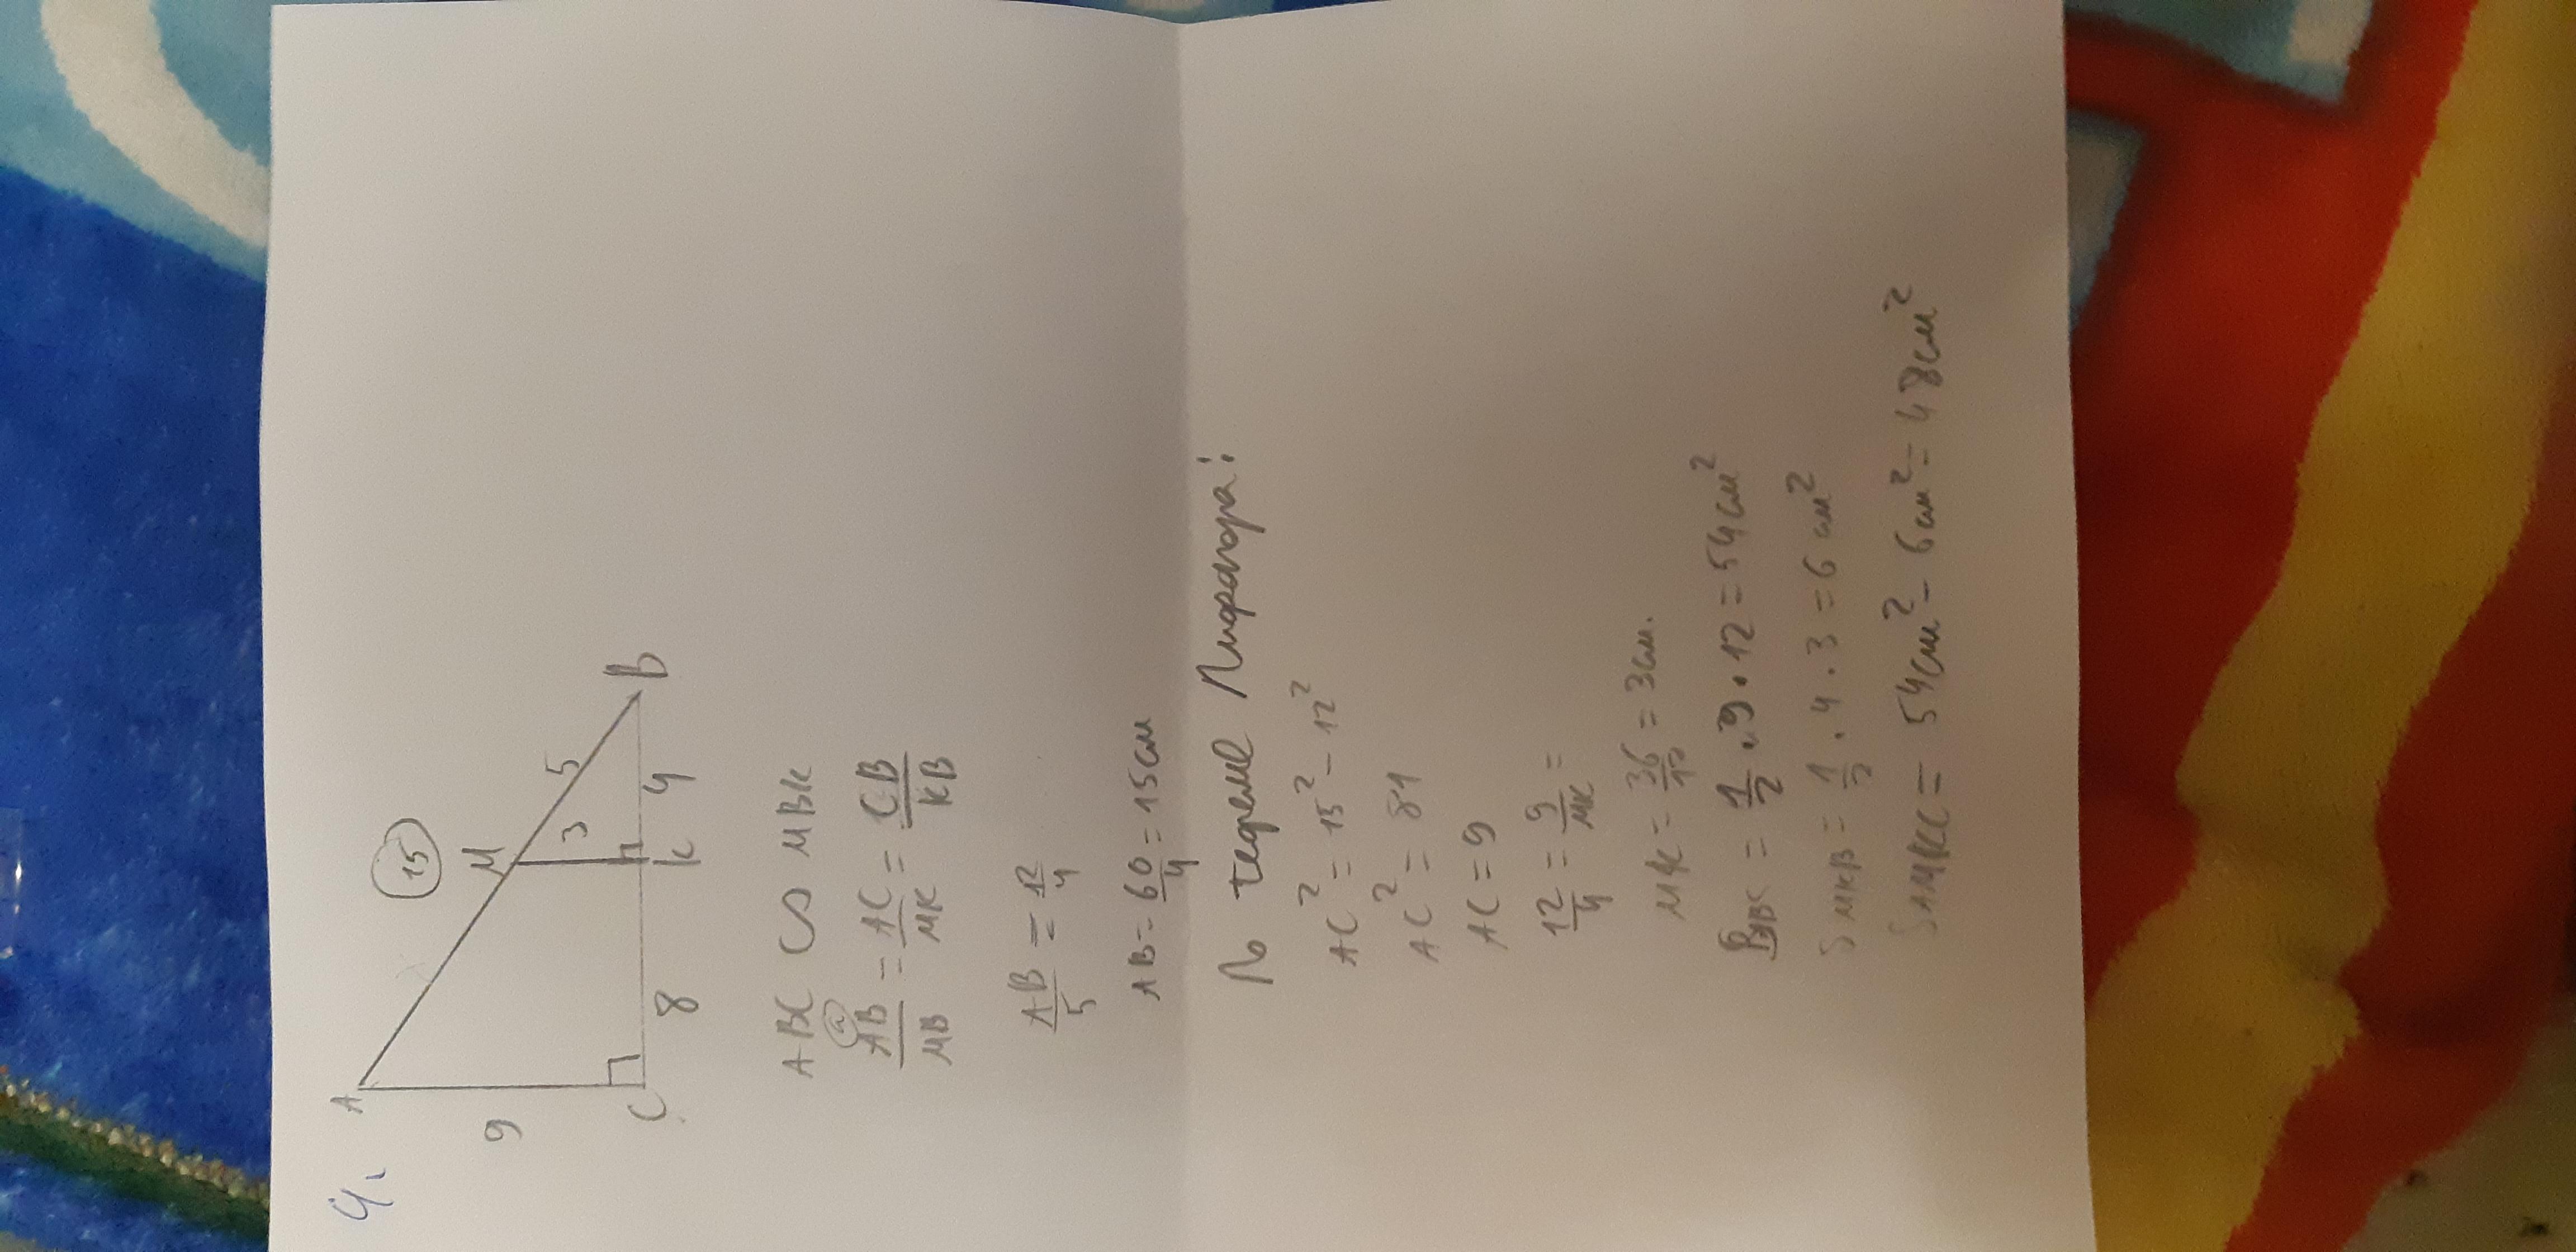 4.
A
15
M
5
9
3
C
8
K
4
B
ABC ∽ MBK
AB/MB = AC/MK = CB/KB
AB/5 = 12/4
AB = 60/4 = 15см
По теореме Пифагора:
AC² = 15² - 12²
AC² = 81
AC = 9
12/4 = 9/MK =
MK = 36/12 = 3см.
SABC = 1/2 · 9 · 12 = 54см²
SMKB = 1/2 · 4 · 3 = 6 см²
SAMKC = 54см² - 6см² = 48см²